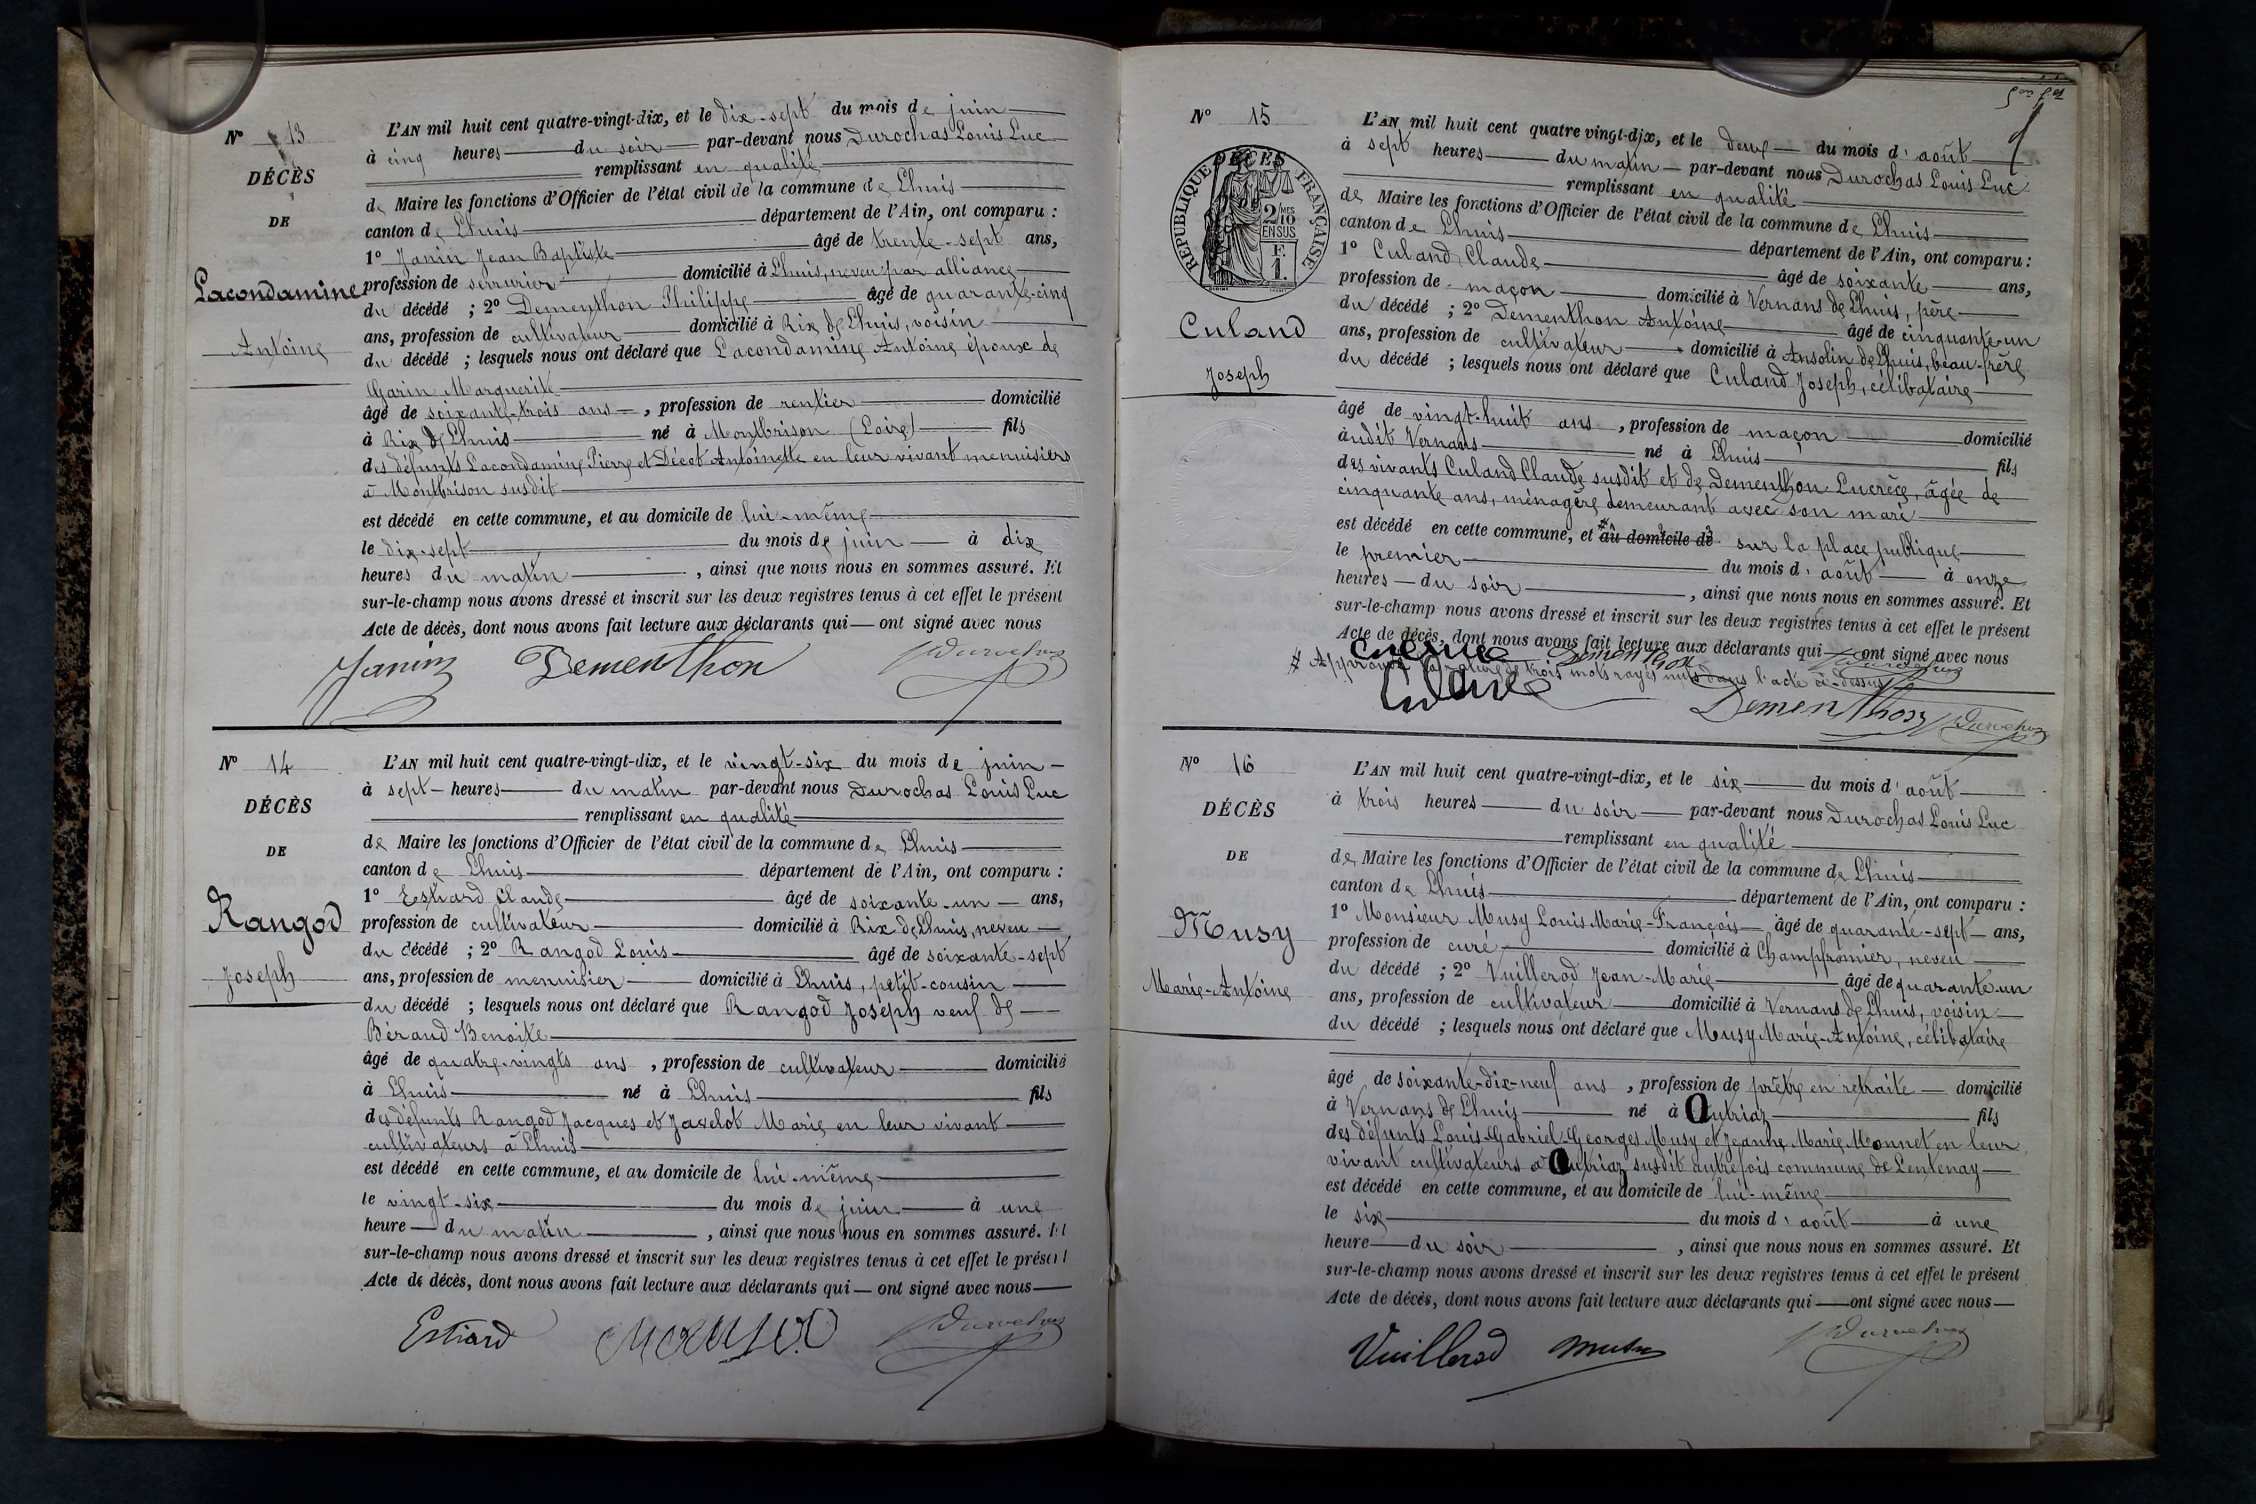 N° 13
DÉCÈS
DE
Lacondamine
Antoine
L'AN mil huit cent quatre-vingt-dix, et le dix-sept du mois de juin
à cinq heures du soir par-devant nous Durochas Louis Luc
remplissant en qualité
de Maire les fonctions d'Officier de l'état civil de la commune de Lhuis
canton de Lhuis département de l'Ain, ont comparu :
1° Janin Jean Baptiste âgé de trente-sept ans,
profession de serrurier domicilié à Lhuis, neveu par alliance
du décédé ; 2° Dementhon Philippe âgé de quarante-cinq
ans, profession de cultivateur domicilié à Rix de Lhuis, voisin
du décédé ; lesquels nous ont déclaré que Lacondamine Antoine époux de
Garin Marguerite
âgé de soixante-trois ans, profession de rentier domicilié
à Rix de Lhuis né à Montbrison (Loire) fils
des défunts Lacondamine Pierre et Décot Antoinette en leur vivant menuisiers
à Montbrison susdit
est décédé en cette commune, et au domicile de lui-même
le dix-sept du mois de juin à dix
heures du matin, ainsi que nous nous en sommes assuré. Et
sur-le-champ nous avons dressé et inscrit sur les deux registres tenus à cet effet le présent
Acte de décès, dont nous avons fait lecture aux déclarants qui ont signé avec nous
Janin Dementhon Durochas
N° 14
DÉCÈS
DE
Rangod
Joseph
L'AN mil huit cent quatre-vingt-dix, et le vingt-six du mois de juin
à sept heures du matin par-devant nous Durochas Louis Luc
remplissant en qualité
de Maire les fonctions d'Officier de l'état civil de la commune de Lhuis
canton de Lhuis département de l'Ain, ont comparu :
1° Estiard Claude âgé de soixante-un ans,
profession de cultivateur domicilié à Rix de Lhuis, neveu
du décédé ; 2° Rangod Louis âgé de soixante-sept
ans, profession de menuisier domicilié à Lhuis, petit-cousin
du décédé ; lesquels nous ont déclaré que Rangod Joseph veuf de
Béraud Benoite
âgé de quatre-vingts ans, profession de cultivateur domicilié
à Lhuis né à Lhuis fils
des défunts Rangod Jacques et Javelot Marie en leur vivant
cultivateurs à Lhuis
est décédé en cette commune, et au domicile de lui-même
le vingt-six du mois de juin à une
heure du matin, ainsi que nous nous en sommes assuré. Et
sur-le-champ nous avons dressé et inscrit sur les deux registres tenus à cet effet le présent
Acte de décès, dont nous avons fait lecture aux déclarants qui ont signé avec nous
Estiard Durochas
N° 15
DÉCÈS
RÉPUBLIQUE FRANÇAISE
2/10 MES
EN SUS
F.
1.
Culand
Joseph
L'AN mil huit cent quatre vingt-dix, et le deux du mois d'août
à sept heures du matin par-devant nous Durochas Louis Luc
remplissant en qualité
de Maire les fonctions d'Officier de l'état civil de la commune de Lhuis
canton de Lhuis département de l'Ain, ont comparu :
1° Culand Claude âgé de soixante ans,
profession de maçon domicilié à Vernans de Lhuis, père
du décédé ; 2° Dementhon Antoine âgé de cinquante-un
ans, profession de cultivateur domicilié à Ansolin de Lhuis, beau-frère
du décédé ; lesquels nous ont déclaré que Culand Joseph, célibataire
âgé de vingt-huit ans, profession de maçon domicilié
audit Vernans né à Lhuis fils
des vivants Culand Claude susdit et de Dementhon Lucrèce, âgée de
cinquante ans, ménagère demeurant avec son mari
est décédé en cette commune, et # au domicile de sur la place publique
le premier du mois d'août à onze
heures du soir, ainsi que nous nous en sommes assuré. Et
sur-le-champ nous avons dressé et inscrit sur les deux registres tenus à cet effet le présent
Acte de décès, dont nous avons fait lecture aux déclarants qui ont signé avec nous
Dementhon Durochas
# Approuvé la rature de trois mots rayés nuls dans l'acte ci-dessus
Dementhon Durochas
N° 16
DÉCÈS
DE
Musy
Marie-Antoine
L'AN mil huit cent quatre-vingt-dix, et le six du mois d'août
à trois heures du soir par-devant nous Durochas Louis Luc
remplissant en qualité
de Maire les fonctions d'Officier de l'état civil de la commune de Lhuis
canton de Lhuis département de l'Ain, ont comparu :
1° Monsieur Musy Louis Marie-François âgé de quarante-sept ans,
profession de curé domicilié à Champfromier, neveu
du décédé ; 2° Vuillerod Jean-Marie âgé de quarante-un
ans, profession de cultivateur domicilié à Vernans de Lhuis, voisin
du décédé ; lesquels nous ont déclaré que Musy Marie-Antoine, célibataire
âgé de soixante-dix-neuf ans, profession de prêtre en retraite domicilié
à Vernans de Lhuis né à Outriaz fils
des défunts Louis-Gabriel-Georges Musy et Jeanne Marie Monnet en leur
vivant cultivateurs à Outriaz susdit autrefois commune de Lentenay
est décédé en cette commune, et au domicile de lui-même
le six du mois d'août à une
heure du soir, ainsi que nous nous en sommes assuré. Et
sur-le-champ nous avons dressé et inscrit sur les deux registres tenus à cet effet le présent
Acte de décès, dont nous avons fait lecture aux déclarants qui ont signé avec nous
Vuillerod Musy Durochas